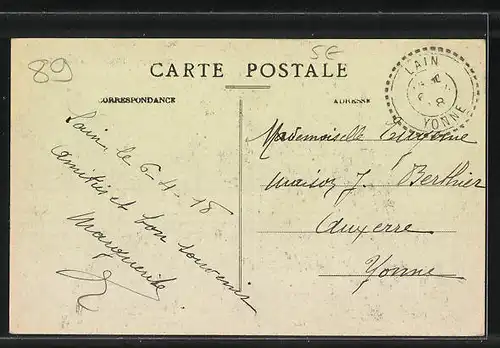 89
5€
CARTE POSTALE
CORRESPONDANCE
ADRESSE
LAIN
YONNE
Lain, le 6-4-18
Amitiés et bon souvenir
Marguerite
Mademoiselle
maison J. Berthier
Auxerre
Yonne